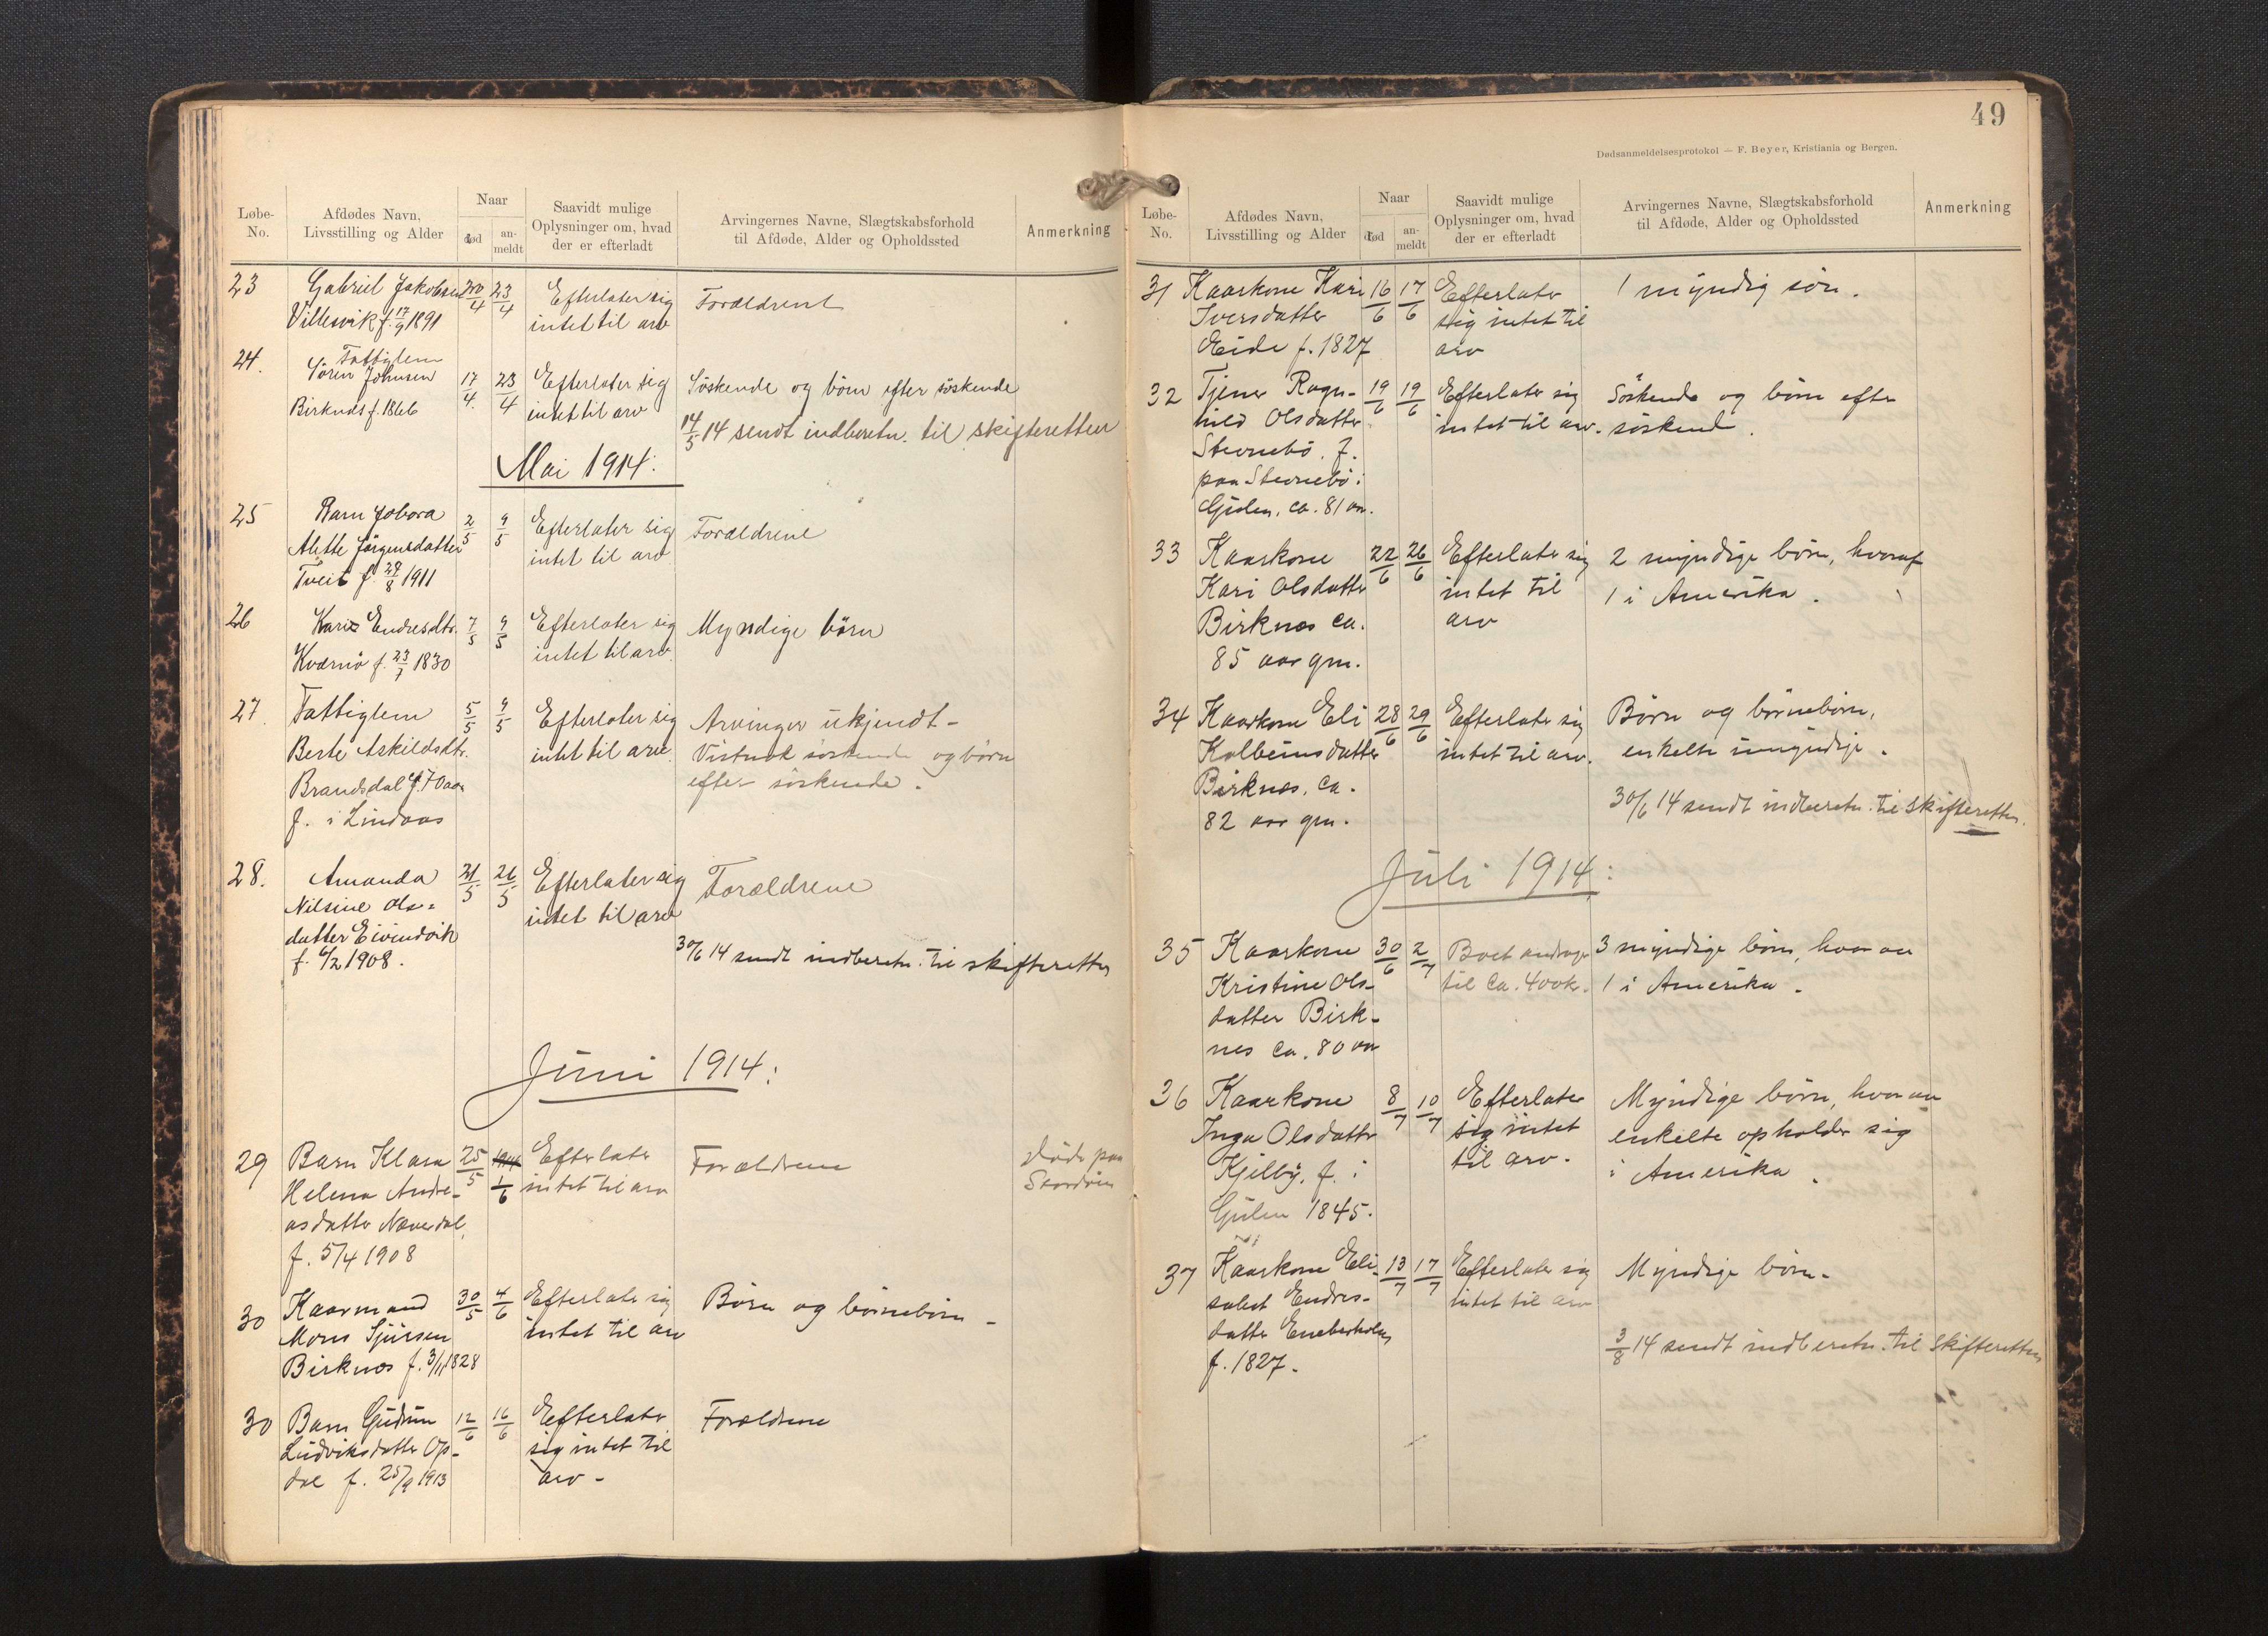 Løbe-No.
Afdødes Navn, Livsstilling og Alder
Naar
død
an-meldt
Saavidt mulige Oplysninger om, hvad der er efterladt
Arvingernes Navne, Slægtskabsforhold til Afdøde, Alder og Opholdssted
Anmerkning
23 Gabriel Jakobsen 20/4 23/4 Efterlater sig Forældrene
f. 17/9 1891 intet til arv
24. Fattiglem
Sören Johnsen 17/4. 23/4 Efterlater sig Söskende og börn efter söskende
Birknes f. 1866 intet til arv
14/5 14 sendt indberetn. til skifteretten
Mai 1914.
25 Barn 2/5 9/5 Efterlater sig Forældrene
Alette Jörgensdatter intet til arv
Tveit f. 28/8 1911
26 Kari Endresdtr. 7/5 9/5 Efterlater sig Myndige börn
Kværnö f. 23/7 1830 intet til arv.
27. Fattiglem 5/5 9/5 Efterlater sig Arvinger ukjendt -
Berte Askildsdtr. intet til arv. Vistnok söskende og börn
Brandsdal 70 aar efter söskende.
f. i Lindaas
28. Amanda 21/5 26/5 Efterlater sig Forældrene
Nilsine Ols= intet til arv
datter Eivindvik
f. 6/2 1908.
30/6 14 sendt indberetn. til skifteretten
Juni 1914:
29 Barn Klara 25/5 1/6 Efterlater Forældrene Döde paa
Helena Andre- intet til arv
asdatter Næverdal,
f. 5/4 1908
30 Kaarmand 30/5 4/6 Efterlater sig Börn og börnebörn -
Mons Sjursen intet til arv
Birknes f. 3/11 1828
30 Barn Gudrun 12/6 16/6 Efterlater Forældrene
Ludviksdatter Op- sig intet til
dal f. 25/9 1913 arv -
49
Dødsanmeldelsesprotokol — F. Beyer, Kristiania og Bergen.
Løbe-No.
Afdødes Navn, Livsstilling og Alder
Naar
død
an-meldt
Saavidt mulige Oplysninger om, hvad der er efterladt
Arvingernes Navne, Slægtskabsforhold til Afdøde, Alder og Opholdssted
Anmerkning
31 Kaarkone Kari 16/6 17/6 Efterlater 1 myndig sön.
Iversdatter sig intet til
Eide f. 1827 arv
32 Tjener Ragn- 19/6 19/6 Efterlater sig Söskende og börn efter
hild Olsdatter intet til arv. söskende.
Stevnebö. f.
paa Stevnebö i
Gulen, ca. 81 aar.
33 Kaarkone 22/6 26/6 Efterlater sig 2 myndige börn, hvoraf
Kari Olsdatter intet til 1 i Amerika.
Birknes ca. arv
85 aar gm.
34 Kaarkone Eli 28/6 29/6 Efterlater sig Börn og börnebörn,
Kolbeinsdatter intet til arv. enkelte umyndige.
Birknes, ca.
82 aar gm.
30/6 14 sendt indberetn. til skifteretten.
Juli 1914:
35 Kaarkone 30/6 2/7 Boet andrager 3 myndige börn, hvorav
Kristine Ols- til ca. 400 kr. 1 i Amerika.
datter Birk-
nes ca. 80 aar
36 Kaarkone 8/7 10/7 Efterlater Myndige börn, hvorav
Inga Olsdatter sig intet enkelte opholder sig
Kjelby, f. i til arv. i Amerika.
Gulen 1845.
37 Kaarkone Eli- 13/7 17/7 Efterlater sig Myndige börn.
sabet Endres- intet til arv
datter
f. 1827.
3/8 14 sendt indberetn. til skifteretten